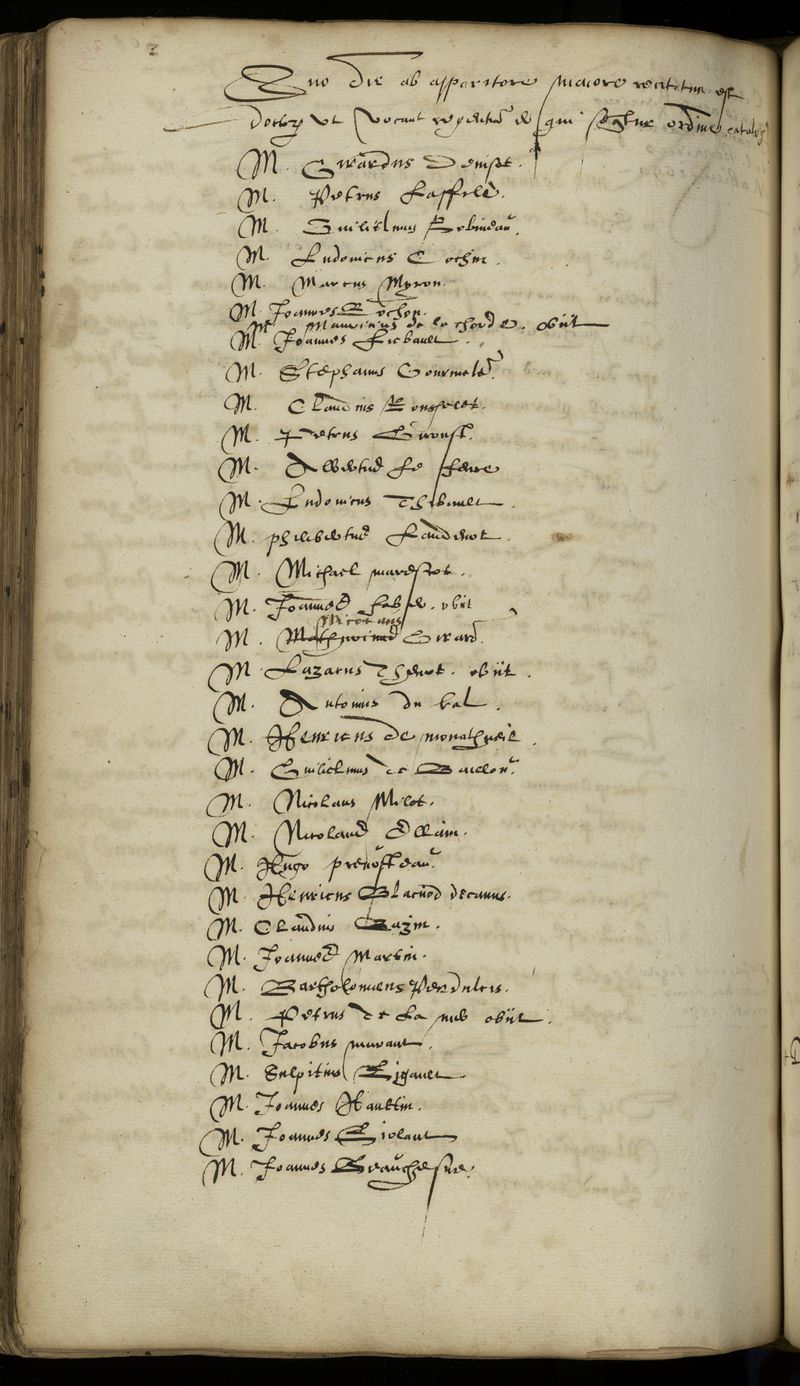 Quo die ab apparitore maiore recitatum est
doctorum vt vocant regentium qui sequitur ordine catalogus
M. Gerardus Denisot.
M. Petrus Laffilé.
M. Guilielmus Robineau.
M. Ludovicus Cochin.
M. Marcus Myron.
M. Joannes Rochon.
M. Mauricius de la Chorde. obiit
M. Joannes Liebault.
M. Stephanus Gourmelen.
M. Claudius Rousselet.
M. Petrus
M. Albertus Le Febvre
M. Ludovicus Thibault.
M. Philibertus
M. Michael Marescot.
M. Joannes Faber. obiit
M. Girard.
M. Lazarus Thenot. obiit.
M. Antonius du Val.
M. Henricus de Monantheuil.
M. Guilielmus de Baillou.
M. Nicolaus Milot.
M. Nicolaus Ellain.
M. Hugo Prevosteau.
M. Henricus Blacuod decanus.
M. Claudius Bazin.
M. Joannes Martin.
M. Bartholomeus Perdulcis.
M. Petrus de La obiit.
M. Jacobus
M. Sulpitius
M. Joannes Hautin.
M. Joannes Riolant
M. Joannes Beauchesne.